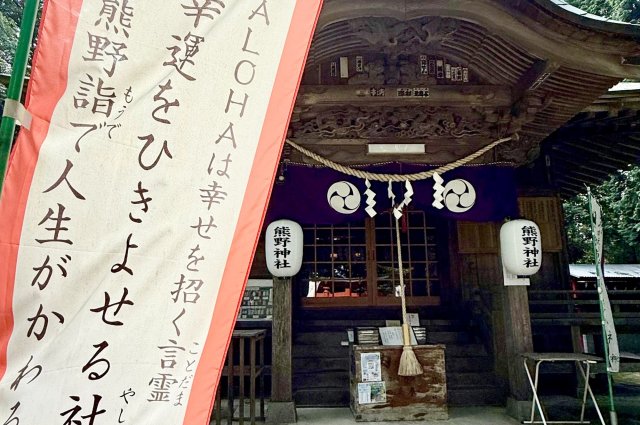 ALOHAは幸せを招く言霊
ことだま
幸運をひきよせる社
やし
熊野詣で人生がかわる
もうで
熊野神社
熊野神社